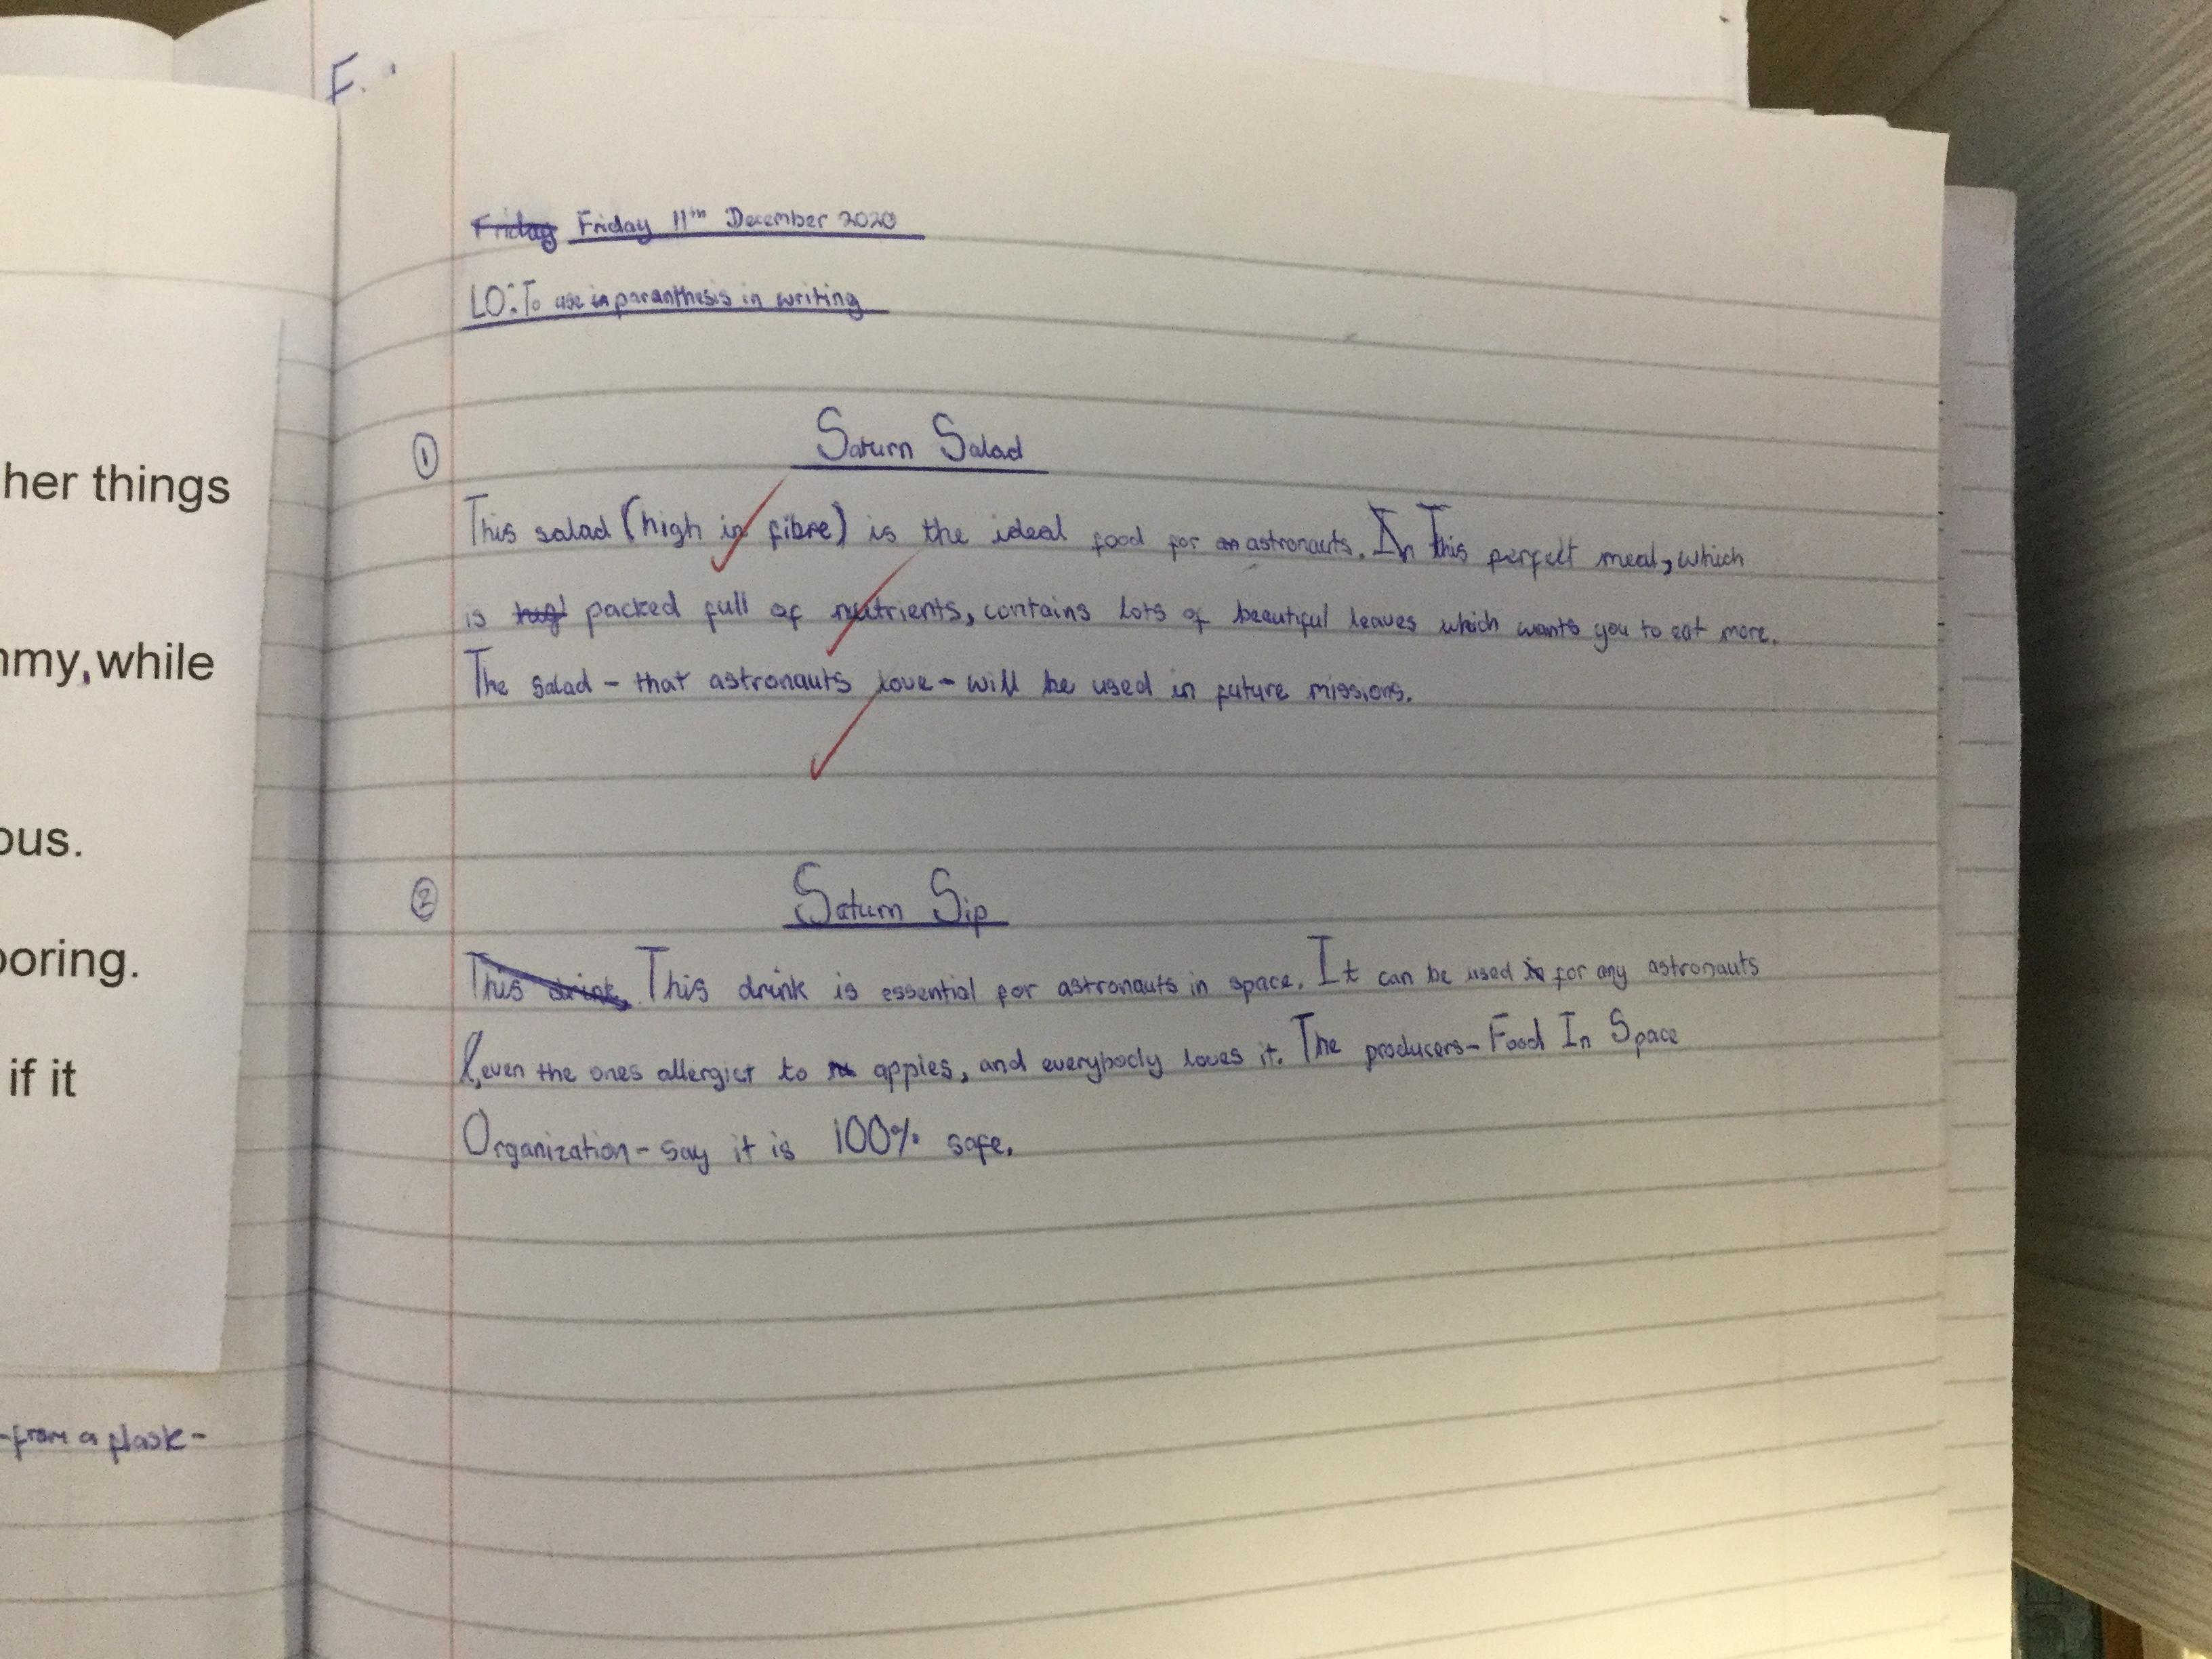 F.
her things
mmy, while
ous.
boring.
if it
- from a flask -
Friday Friday 11th December 2020
LO: To use in paranthesis in writing
1 Saturn Salad
This salad (high in fibre) is the ideal food for an astronauts. In This perfect meal, which
is packed full of nutrients, contains lots of beautiful leaves which wants you to eat more.
The salad - that astronauts love - will be used in future missions.
2 Saturn Sip
This drink, This drink is essential for astronauts in space. It can be used in for any astronauts
(, even the ones allergict to apples, and everybody loves it. The producers - Food In Space
Organization - say it is 100% safe.